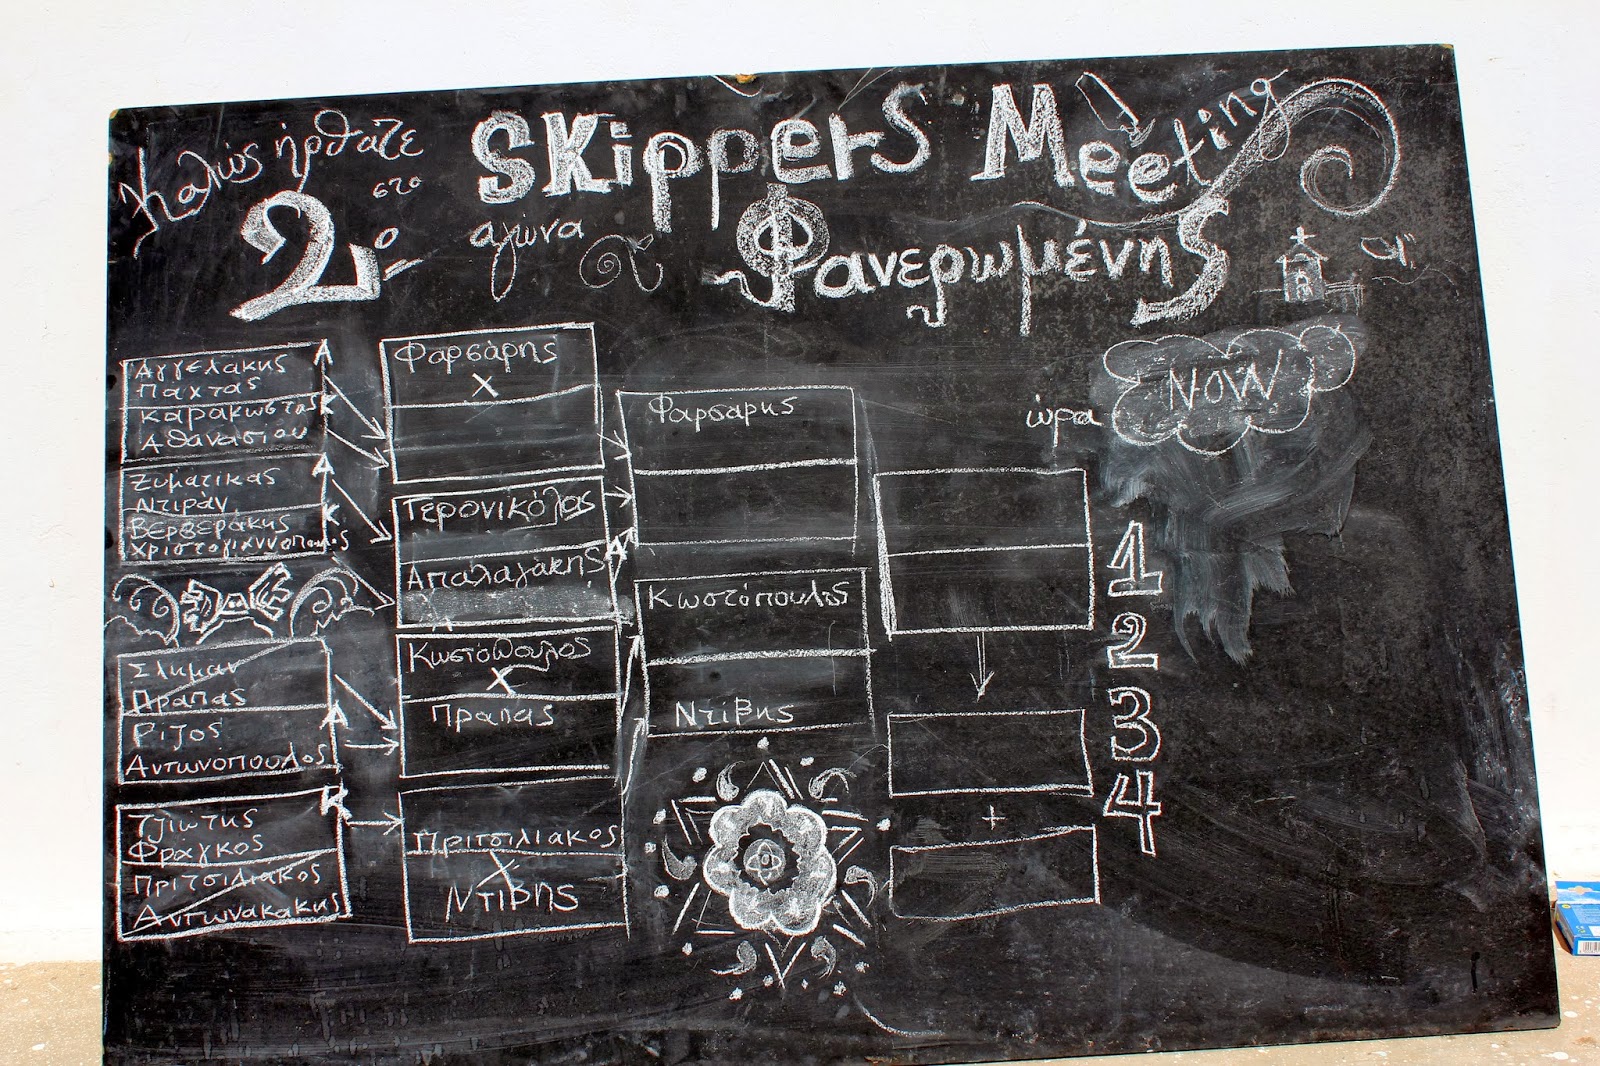 Καλώς ήρθατε
στο
2ο
αγώνα
SKippers Meeting
Φανερωμένης
ώρα
NOW
Αγγελάκης A
Παχτας
Καρακωστας K
Αθανασίου
Ζυματικας A
Ντιράν
Βερβεράκης K
Χριστογιαννόπουλος
Σλημαν
Πραπας
Ριζος A
Αντωνόπουλος
Τζιώτης K
Φραγκος
Πριτσιλιακος
Αντωνακακης
Φαρσάρης
X
Γερονικόλας
Απαλαγάκης A
Κωστόπουλος
X
Πραπας
Πριτσιλιακος
X
Ντιβης
Φαρσαρης
Κωστόπουλος
Ντίβης
+
1
2
3
4